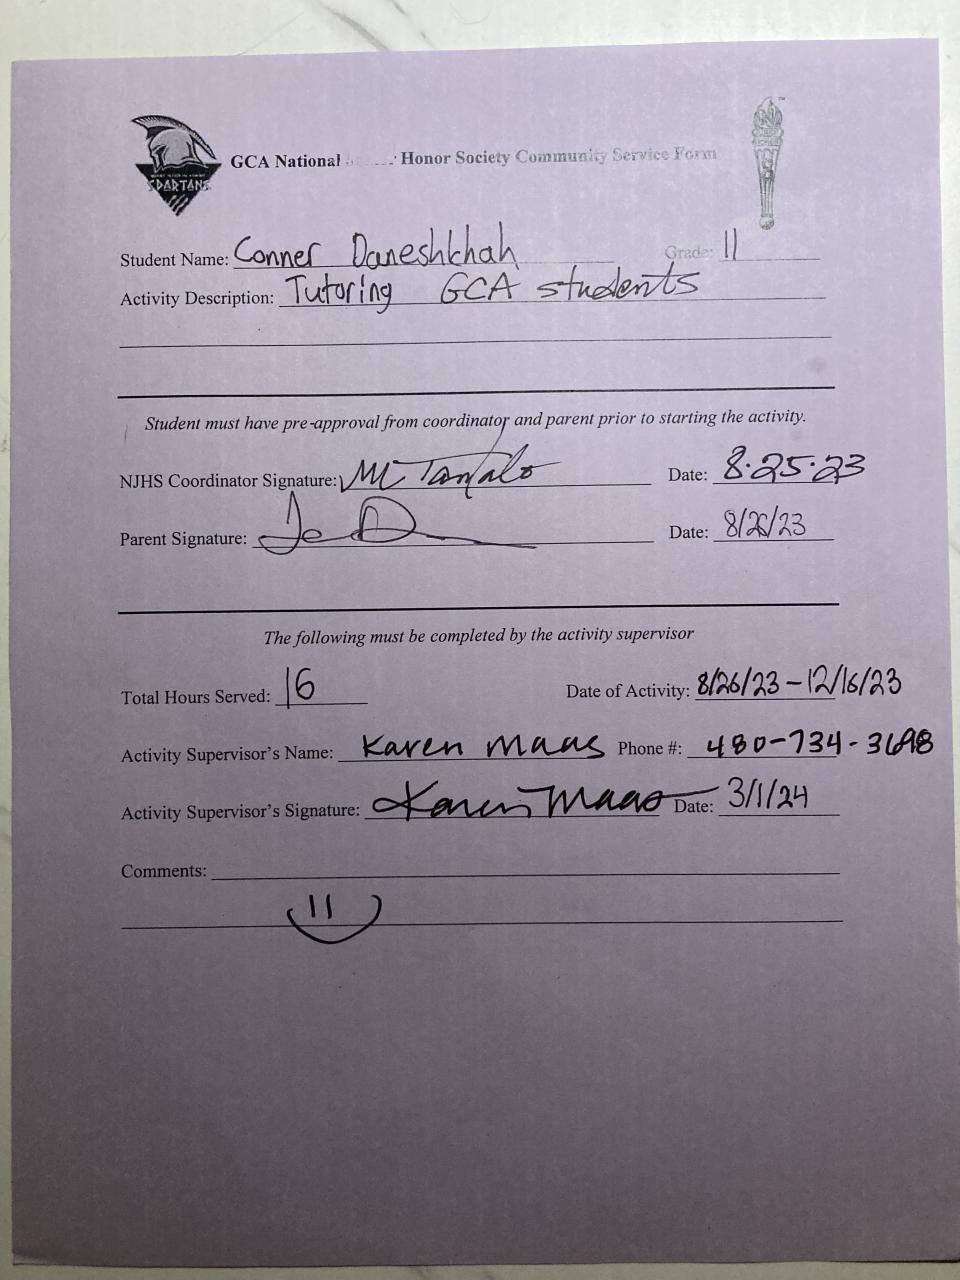 GCA National Honor Society Community Service Form
SPARTANS
Student Name: Conner Daneshkhah Grade: 11
Activity Description: Tutoring GCA students
Student must have pre-approval from coordinator and parent prior to starting the activity.
NJHS Coordinator Signature: Date: 8.25.23
Parent Signature: Date: 8/26/23
The following must be completed by the activity supervisor
Total Hours Served: 16 Date of Activity: 8/26/23 - 12/16/23
Activity Supervisor's Name: Karen Maas Phone #: 480-734-3698
Activity Supervisor's Signature: Karen Maas Date: 3/1/24
Comments: